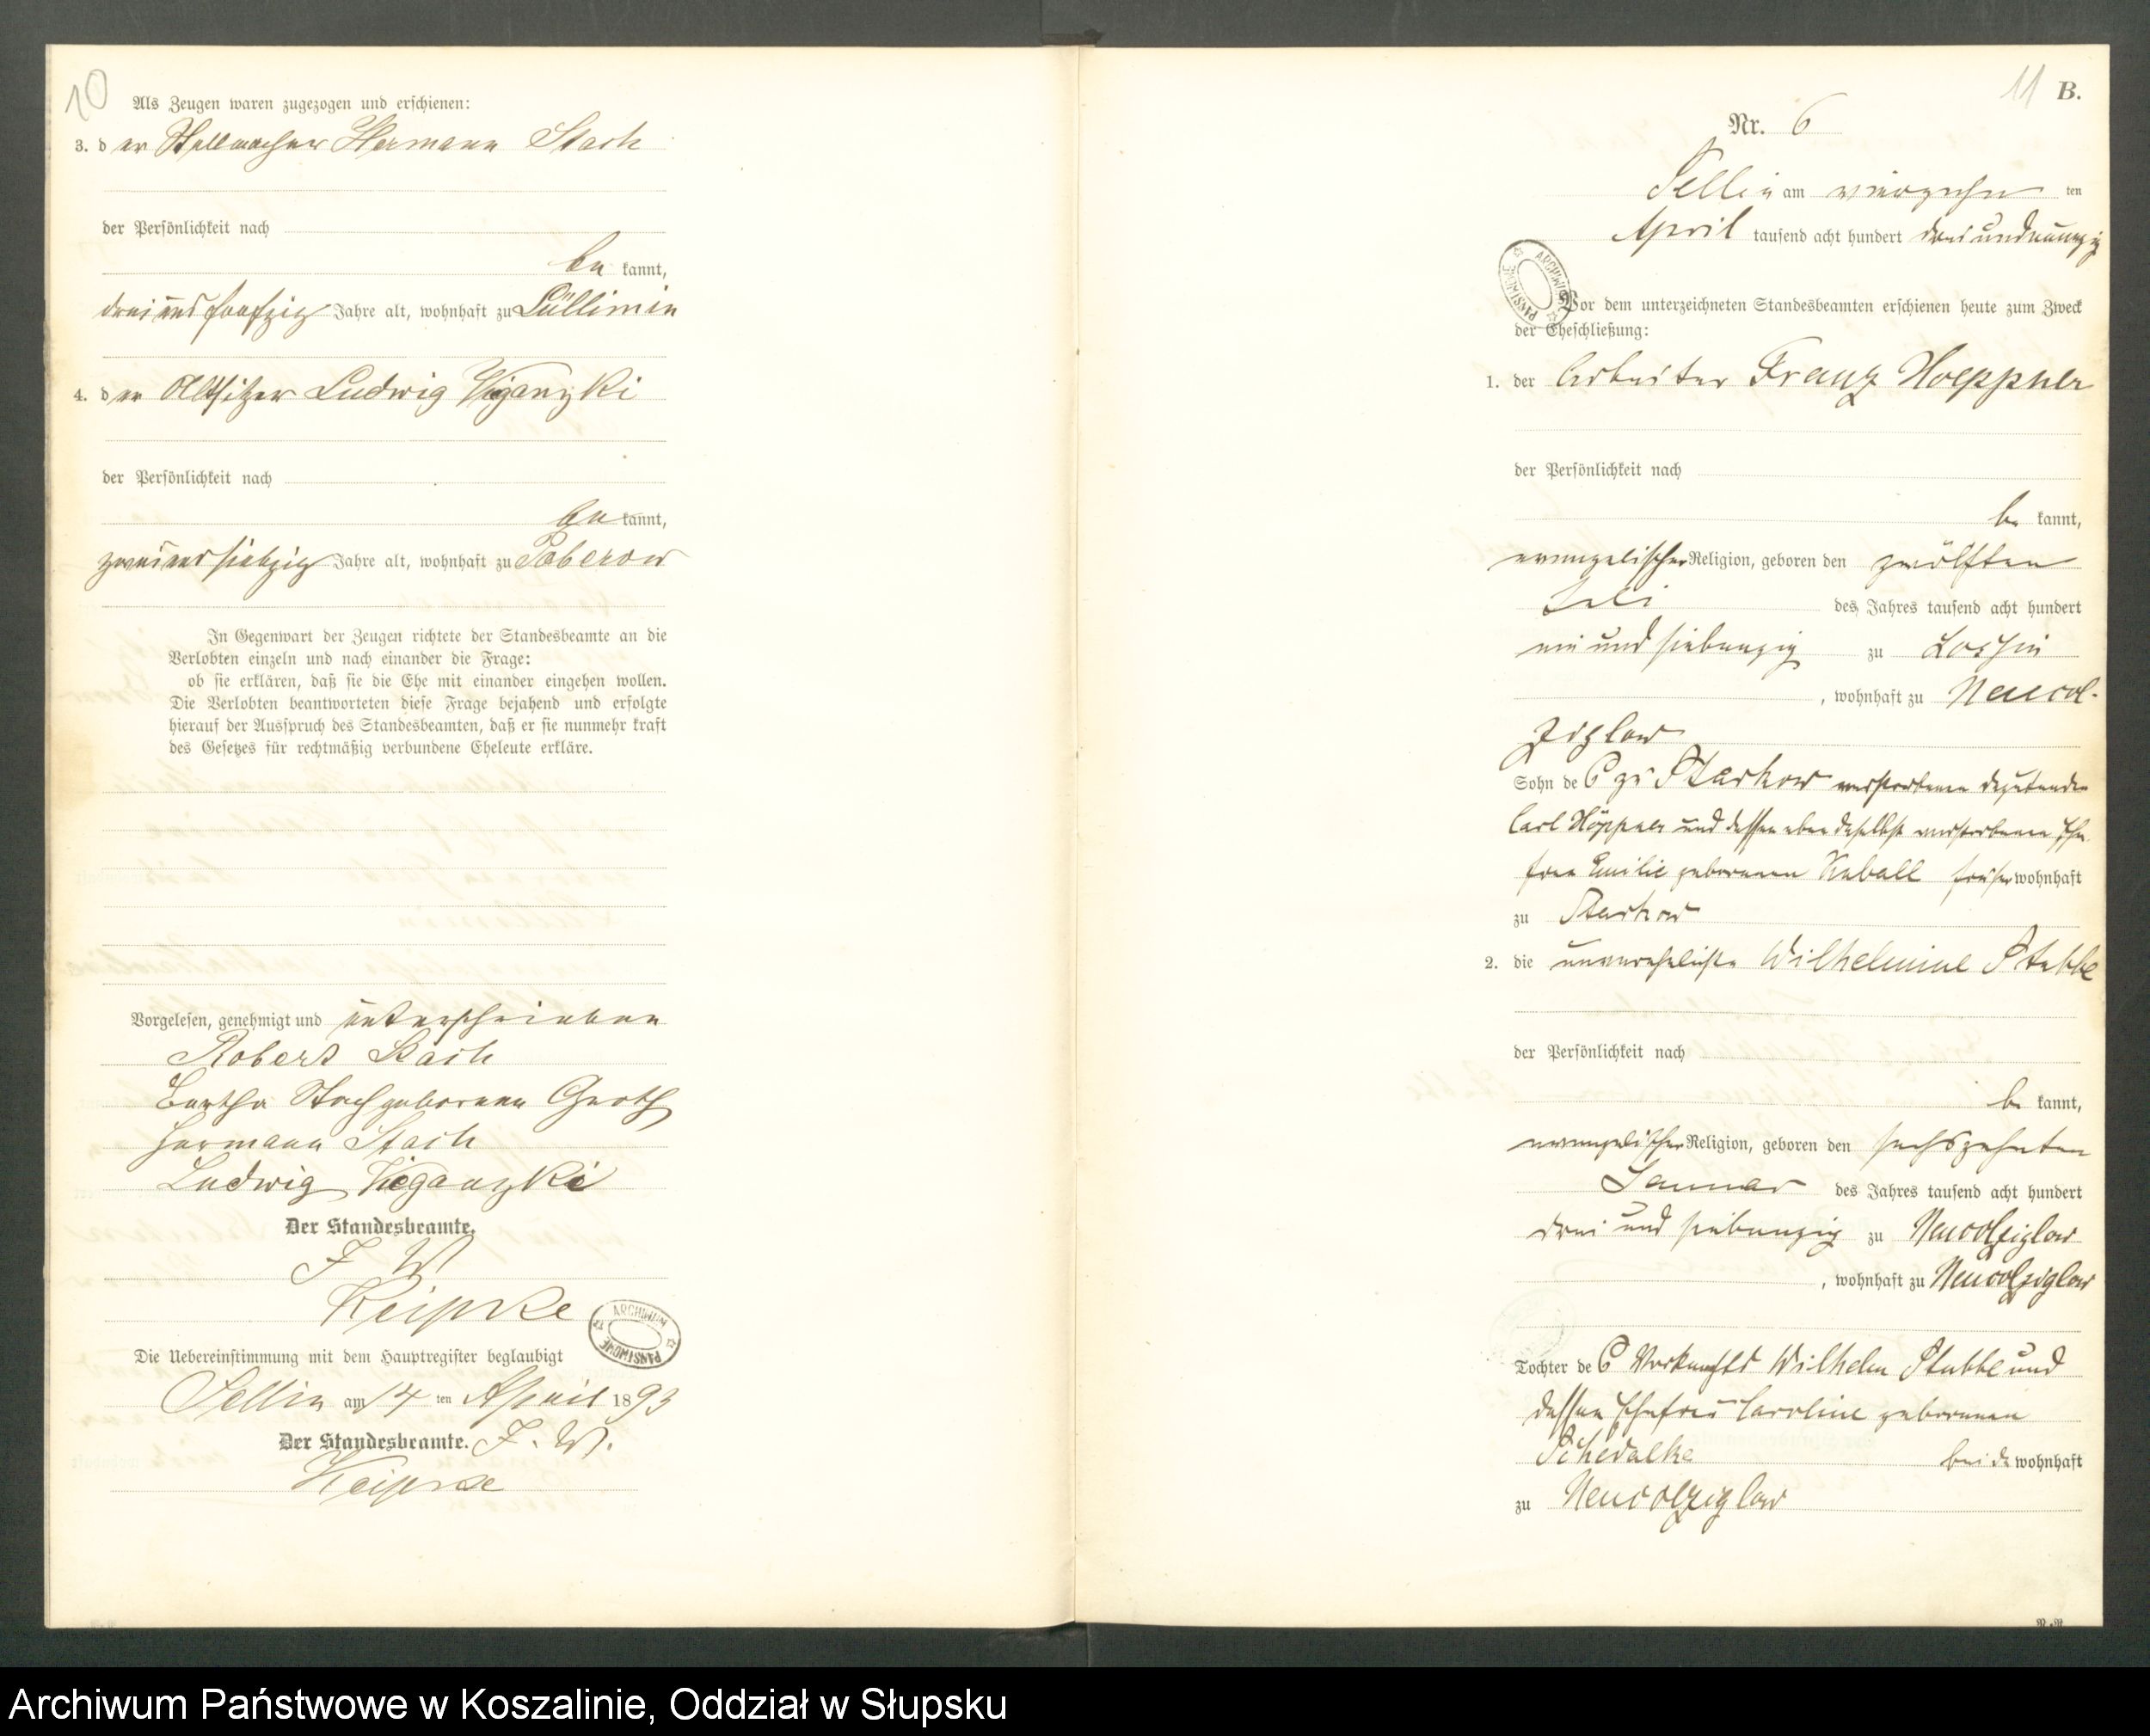 10
Als Zeugen waren zugezogen und erschienen:
3. der Stellmacher Hermann Stach
der Persönlichkeit nach
be kannt,
drei und fünfzig Jahre alt, wohnhaft zu Lüllimin
4. der Altsitzer Ludwig
der Persönlichkeit nach
be kannt,
zwei und siebzig Jahre alt, wohnhaft zu Poberow
In Gegenwart der Zeugen richtete der Standesbeamte an die
Verlobten einzeln und nach einander die Frage:
ob sie erklären, daß sie die Ehe mit einander eingehen wollen.
Die Verlobten beantworteten diese Frage bejahend und erfolgte
hierauf der Ausspruch des Standesbeamten, daß er sie nunmehr kraft
des Gesetzes für rechtmäßig verbundene Eheleute erkläre.
Vorgelesen, genehmigt und unterschrieben
Robert Stach
Bertha Stach geborenen Groth
Hermann Stach
Ludwig
Der Standesbeamte.
J W
Keipke
ARCHIWUM PAŃSTWOWE
Die Uebereinstimmung mit dem Hauptregister beglaubigt
Sellin am 14 ten April 1893
Der Standesbeamte. J. W.
Keipke
11 B.
Nr. 6
Sellin am vierzehn ten
April tausend acht hundert drei und neunzig
ARCHIWUM PAŃSTWOWE
Vor dem unterzeichneten Standesbeamten erschienen heute zum Zweck
der Eheschließung:
1. der Arbeiter Franz Hoeppner
der Persönlichkeit nach
be kannt,
evangelischer Religion, geboren den zwölften
Juli des Jahres tausend acht hundert
ein und siebenzig zu Lossin
, wohnhaft zu Neucol-
ziglow
Sohn des zu Starkow verstorbenen
Carl Höppner und dessen eben daselbst verstorbenen Ehe-
frau Emilie geborenen Kuball früher wohnhaft
zu Starkow
2. die unverehelichte Wilhelmine Stubbe
der Persönlichkeit nach
be kannt,
evangelischer Religion, geboren den sechszehnten
Januar des Jahres tausend acht hundert
drei und siebenzig zu Neucolziglow
, wohnhaft zu Neucolziglow
Tochter des Wilhelm Stubbe und
dessen Ehefrau Caroline geborenen
Schedalke beide wohnhaft
zu Neucolziglow
Archiwum Państwowe w Koszalinie, Oddział w Słupsku